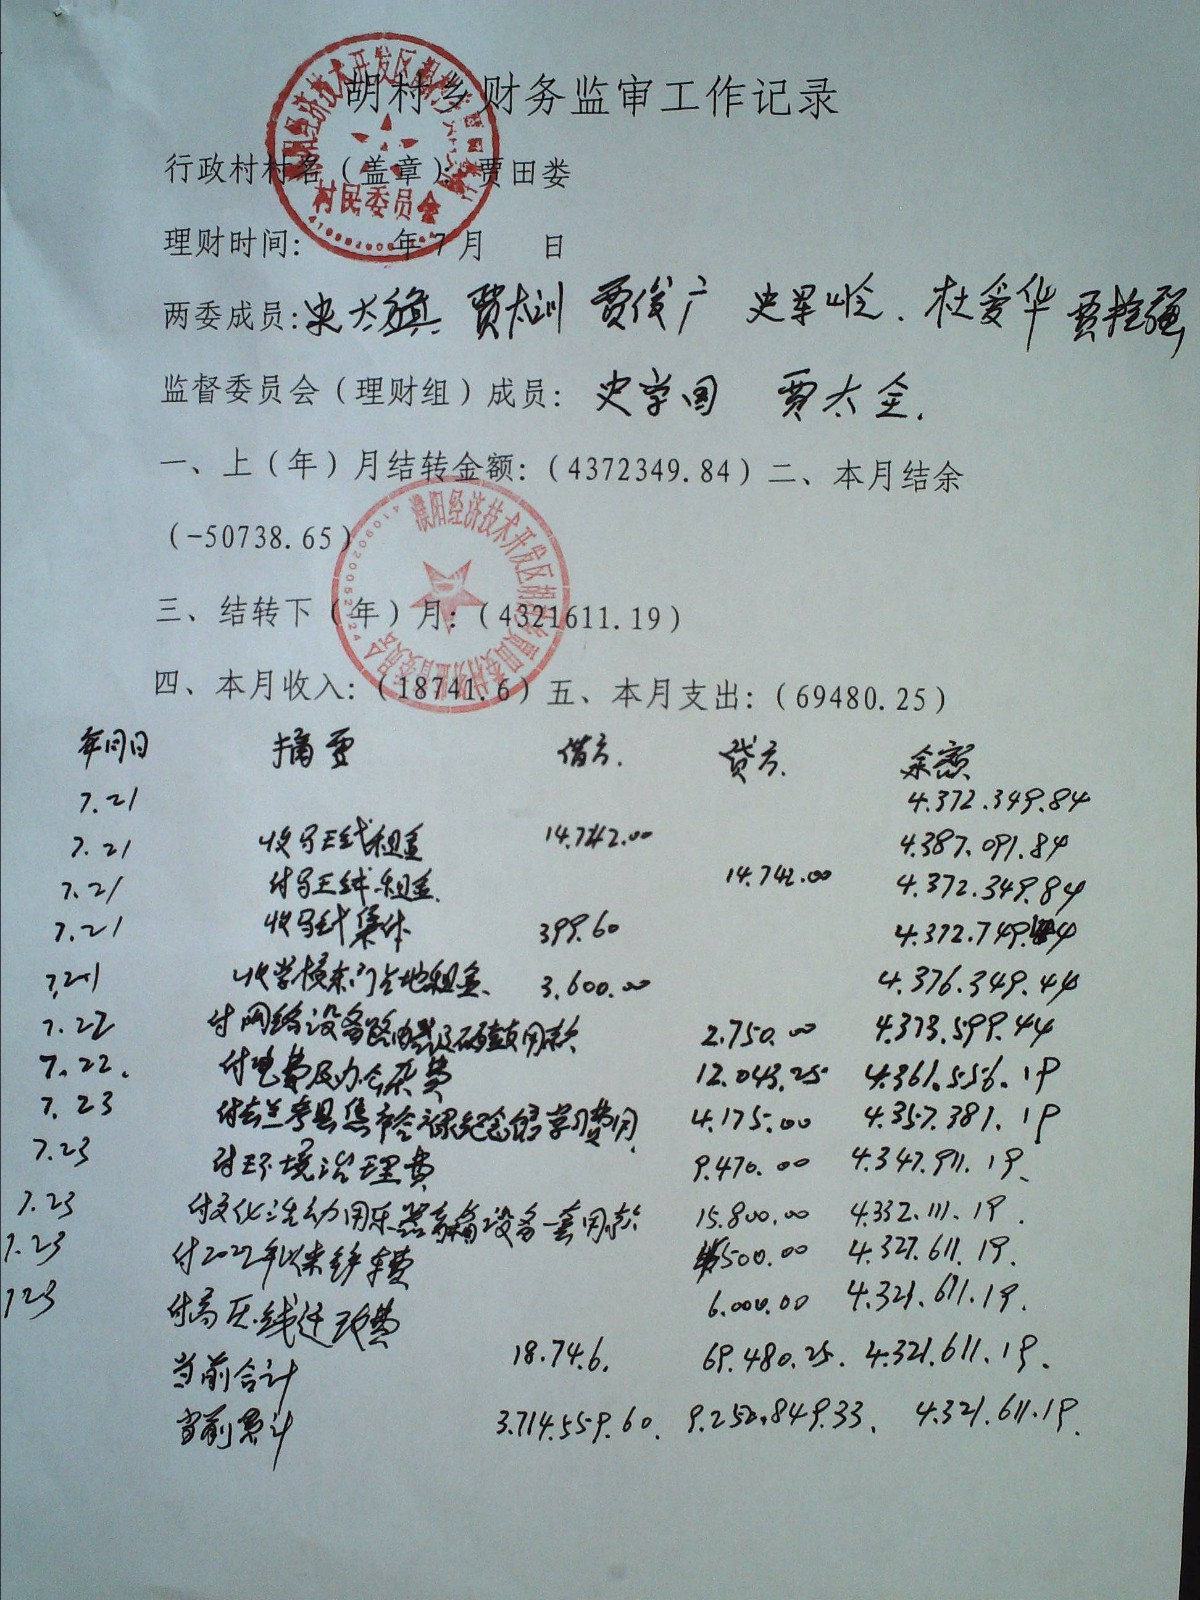 胡村乡财务监审工作记录
行政村村名（盖章）：贾田娄
村民委员会
理财时间： 年7月 日
两委成员：史太旗 贾太训 贾俊广 史军岭、杜爱华 贾拴强
监督委员会（理财组）成员： 史学国 贾太全.
一、上（年）月结转金额：（4372349.84）二、本月结余
（-50738.65）
濮阳经济技术开发区胡村乡贾田娄村务监督委员会
三、结转下（年）月：（4321611.19）
四、本月收入：（18741.6）五、本月支出：（69480.25）
年月日 摘要 借方. 贷方. 余额
7.21 4.372.349.84
7.21 收马王线租金 14.742.00 4.387.091.84
7.21 付马王线租金. 14.742.00 4.372.349.84
7.21 收马线集体 399.60 4.372.749.44
7.21 收学校东门占地租金、 3.600.00 4.376.349.44
7.22 付网络设备路由器及硒鼓用款 2.750.00 4.373.599.44
7.22. 付电费及办公床费 12.043.25 4.361.556.19
7.23 付去兰考县焦裕禄纪念馆学习费用 4.175.00 4.357.381.19
7.23 付环境治理费 9.470.00 4.347.911.19、
7.23 付文化活动用乐器音箱设备一套用款 15.800.00 4.332.111.19.
7.23 付2022年以来铲车费 500.00 4.327.611.19.
723 付高压线迁改费 6.000.00 4.321.611.19.
当前合计 18.74.6. 69.480.25. 4.321.611.19.
当前累计 3.714.559.60. 9.250.849.33. 4.321.611.19.